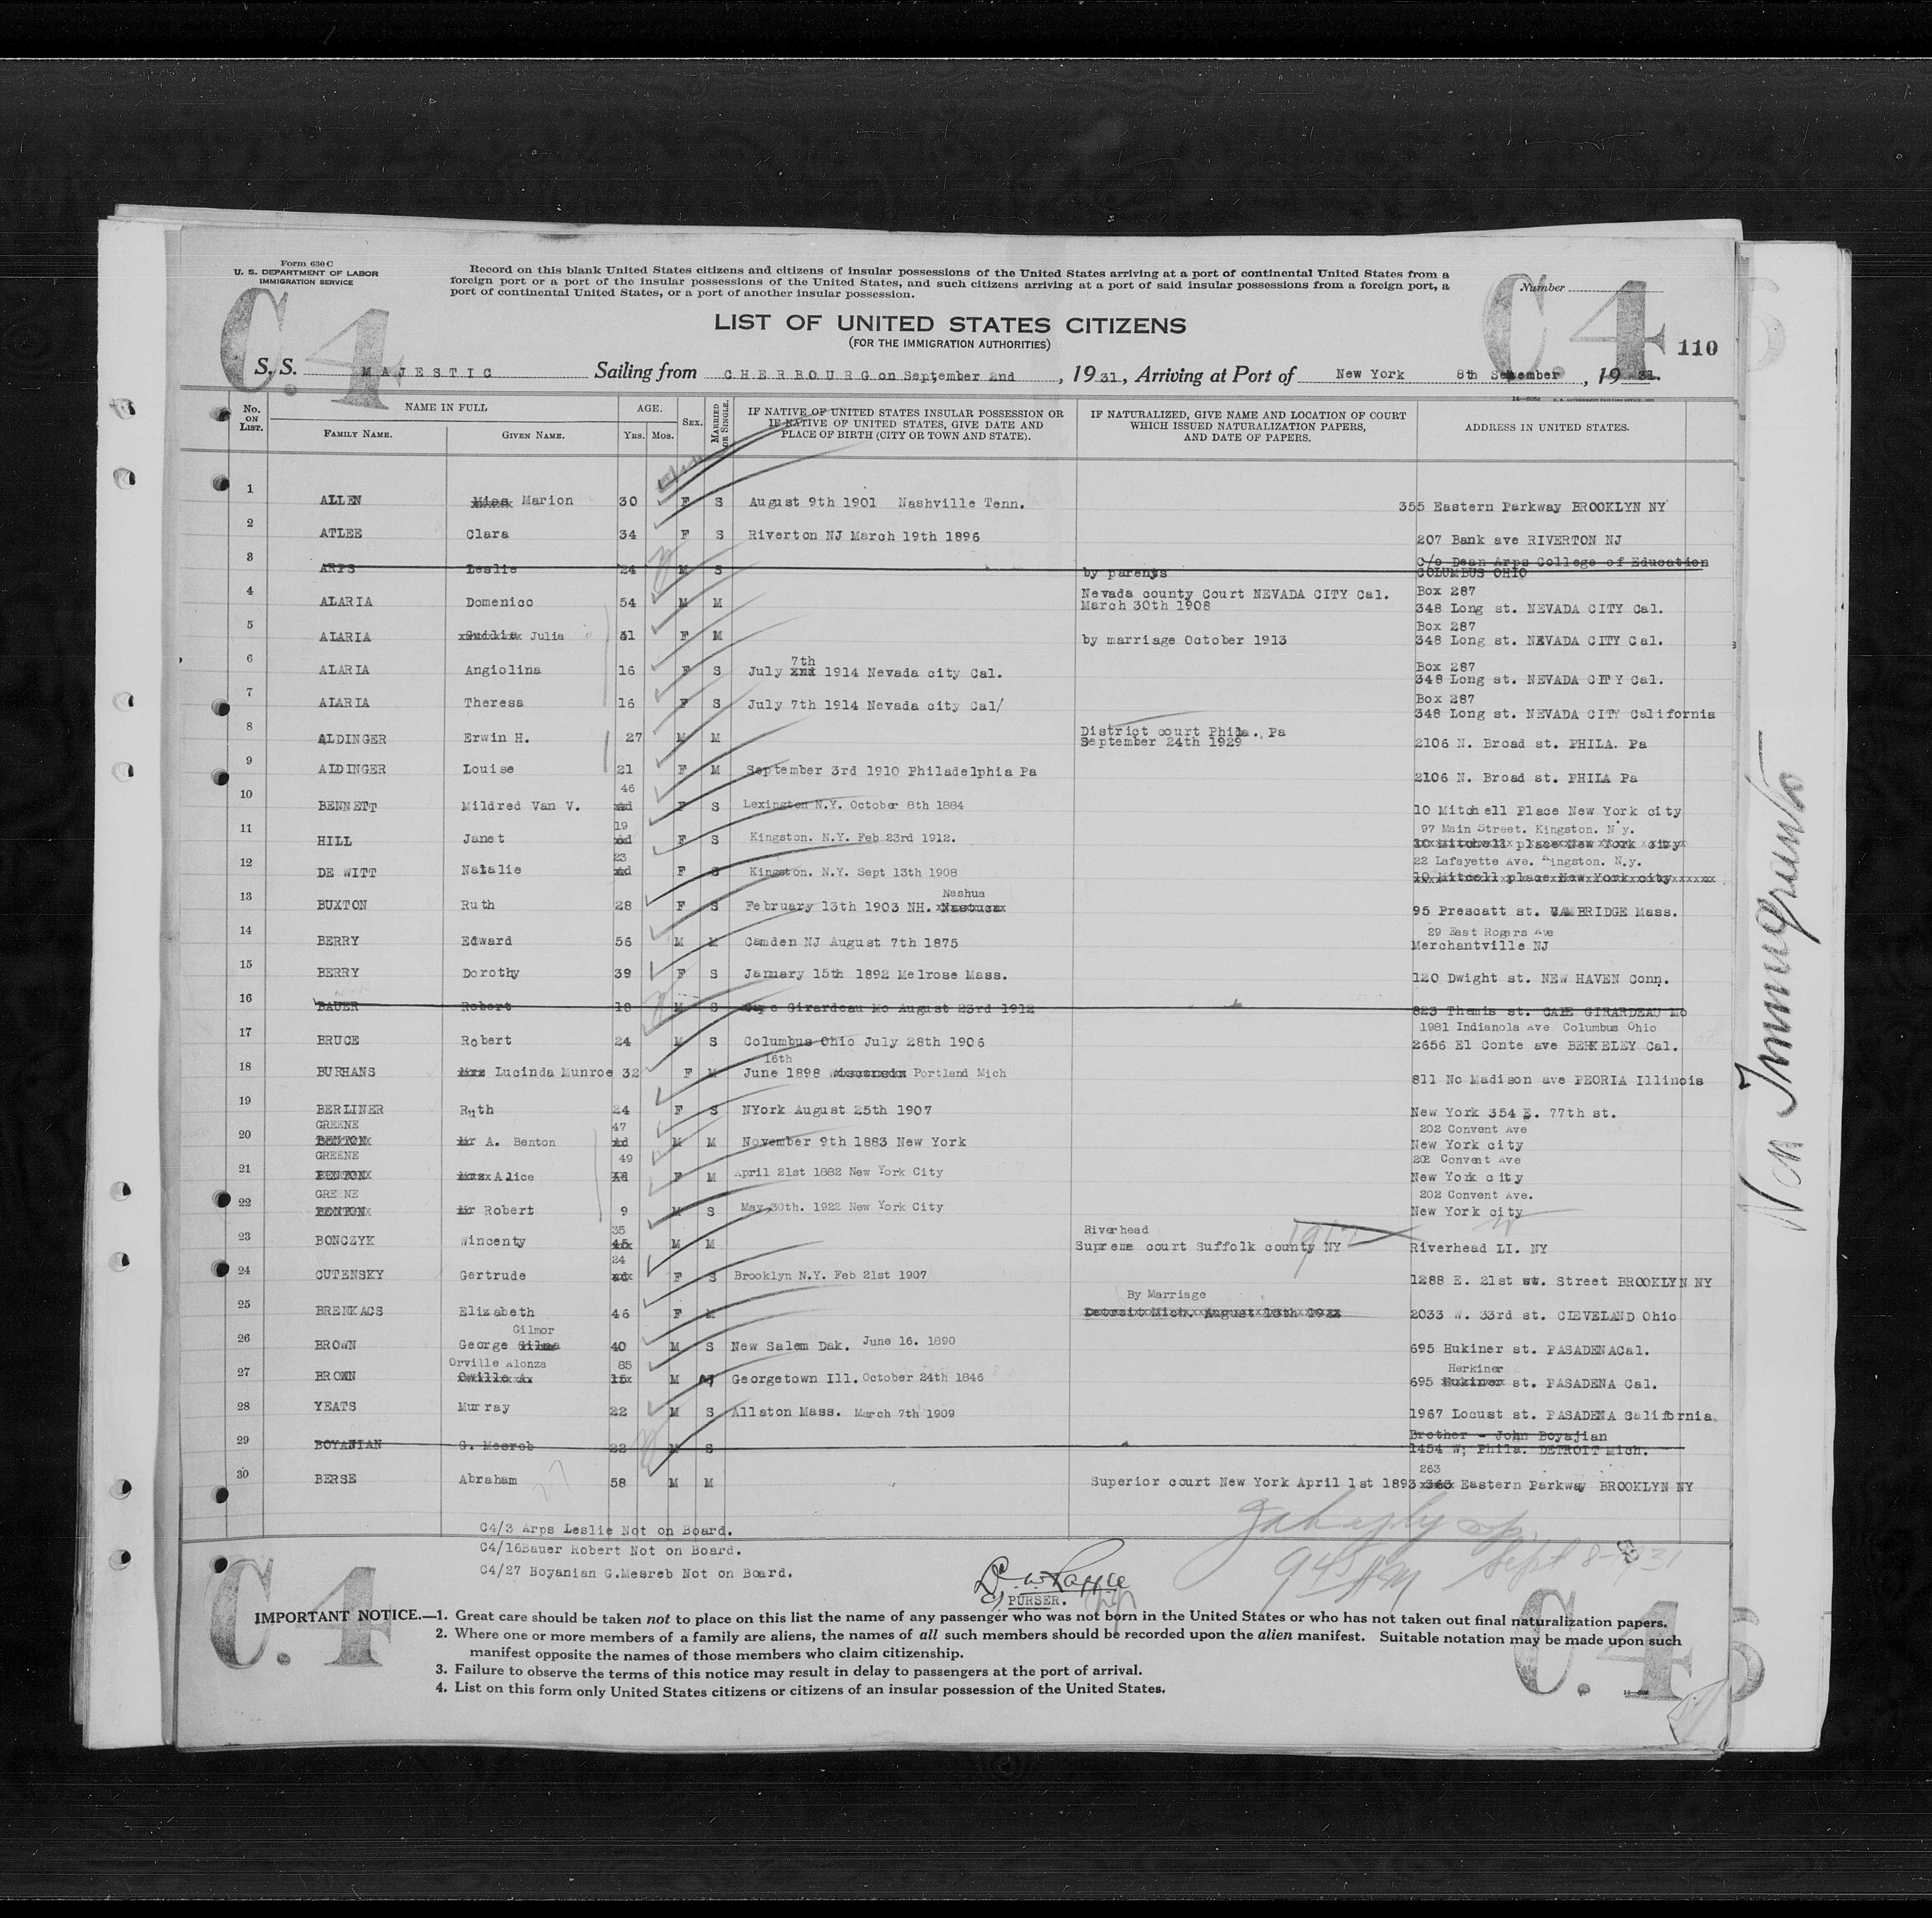 Form 630 C
U. S. DEPARTMENT OF LABOR
IMMIGRATION SERVICE
Record on this blank United States citizens and citizens of insular possessions of the United States arriving at a port of continental United States from a
foreign port or a port of the insular possessions of the United States, and such citizens arriving at a port of said insular possessions from a foreign port, a
port of continental United States, or a port of another insular possession.
Number
C.4
C.4
LIST OF UNITED STATES CITIZENS
(FOR THE IMMIGRATION AUTHORITIES)
110
S. S. MAJESTIC Sailing from CHERBOURG on September 2nd, 1931, Arriving at Port of New York 8th September, 1931.
No. ON LIST. NAME IN FULL AGE. Sex. MARRIED OR SINGLE. IF NATIVE OF UNITED STATES INSULAR POSSESSION OR IF NATIVE OF UNITED STATES, GIVE DATE AND PLACE OF BIRTH (CITY OR TOWN AND STATE). IF NATURALIZED, GIVE NAME AND LOCATION OF COURT WHICH ISSUED NATURALIZATION PAPERS, AND DATE OF PAPERS. ADDRESS IN UNITED STATES.
FAMILY NAME. GIVEN NAME. Yrs. Mos.
1 ALLEN Miss Marion 30 F S August 9th 1901 Nashville Tenn. 355 Eastern Parkway BROOKLYN NY
2 ATLEE Clara 34 F S Riverton NJ March 19th 1896 207 Bank ave RIVERTON NJ
C/o Dean Arps College of Education
3 ARPS Leslie 24 M S by parents COLUMBUS OHIO
Nevada county Court NEVADA CITY Cal. Box 287
4 ALARIA Domenico 54 M M March 30th 1908 348 Long st. NEVADA CITY Cal.
Box 287
5 ALARIA Julia F M by marriage October 1913 348 Long st. NEVADA CITY Cal.
7th Box 287
6 ALARIA Angiolina 16 F S July 1914 Nevada city Cal. 348 Long st. NEVADA CITY Cal.
Box 287
7 ALARIA Theresa 16 F S July 7th 1914 Nevada city Cal/ 348 Long st. NEVADA CITY California
District court Phila., Pa
8 ALDINGER Erwin H. 27 M M September 24th 1929 2106 N. Broad st. PHILA. Pa
9 ALDINGER Louise 21 F M September 3rd 1910 Philadelphia Pa 2106 N. Broad st. PHILA Pa
46
10 BENNETT Mildred Van V. Ad F S Lexington N.Y. October 8th 1884 10 Mitchell Place New York city
19 97 Main Street. Kingston. N.y.
11 HILL Janet Ad F S Kingston. N.Y. Feb 23rd 1912. 10 Mitchell place New York city
23 22 Lafayette Ave. Kingston. N.y.
12 DE WITT Natalie Ad F S Kingston. N.Y. Sept 13th 1908 10 Mitcell place New York city
Nashua
13 BUXTON Ruth 28 F S February 13th 1903 NH. 95 Prescatt st. CAMBRIDGE Mass.
29 East Rogers Ave
14 BERRY Edward 56 M M Camden NJ August 7th 1875 Merchantville NJ
15 BERRY Dorothy 39 F S January 15th 1892 Melrose Mass. 120 Dwight st. NEW HAVEN Conn.
16 BAUER Robert 18 M S Cape Girardeau Mo August 23rd 1912 823 Themis st. CAPE GIRARDEAU Mo
1981 Indianola Ave Columbus Ohio
17 BRUCE Robert 24 M S Columbus Ohio July 28th 1906 2656 El Conte ave BERKELEY Cal.
16th
18 BURHANS Mrs Lucinda Munroe 32 F M June 1898 Portland Mich 811 No Madison ave PEORIA Illinois
19 BERLINER Ruth 24 F S NYork August 25th 1907 New York 354 E. 77th st.
GREENE 47 202 Convent Ave
20 BENTON Mr A. Benton Ad M M November 9th 1883 New York New York city
GREENE 49 202 Convent Ave
21 BENTON Mrs Alice Ad F M April 21st 1882 New York City New York city
GREENE 202 Convent Ave.
22 BENTON Mr Robert 9 M S May 30th. 1922 New York City New York city
35 Riverhead
23 BONCZYK Wincenty 45 M M Supreme court Suffolk county NY Riverhead LI. NY
24
24 CUTENSKY Gertrude ad F S Brooklyn N.Y. Feb 21st 1907 1288 E. 21st st. Street BROOKLYN NY
By Marriage
25 BRENKACS Elizabeth 46 F M Detroit Mich. August 13th 2033 W. 33rd st. CLEVELAND Ohio
Gilmor
26 BROWN George 40 M S New Salem Dak. June 16. 1890 695 Hukiner st. PASADENA Cal.
Orville Alonza 85 Herkiner
27 BROWN Oville A. 15 M M Georgetown Ill. October 24th 1846 695 Hukiner st. PASADENA Cal.
28 YEATS Murray 22 M S Allston Mass. March 7th 1909 1967 Locust st. PASADENA California
Brother - John Boyajian
29 BOYAJIAN G. Mesrob 22 M S 1454 W; Phila. DETROIT Mich.
263
30 BERSE Abraham 58 M M Superior court New York April 1st 1893 363 Eastern Parkway BROOKLYN NY
27
C4/3 Arps Leslie Not on Board.
C4/16Bauer Robert Not on Board.
C4/27 Boyanian G.Mesreb Not on Board.
945 AM Sept 8-1931
PURSER.
IMPORTANT NOTICE.—1. Great care should be taken not to place on this list the name of any passenger who was not born in the United States or who has not taken out final naturalization papers.
2. Where one or more members of a family are aliens, the names of all such members should be recorded upon the alien manifest. Suitable notation may be made upon such
manifest opposite the names of those members who claim citizenship.
3. Failure to observe the terms of this notice may result in delay to passengers at the port of arrival.
4. List on this form only United States citizens or citizens of an insular possession of the United States.
C.4
C.4
Non Immigrants